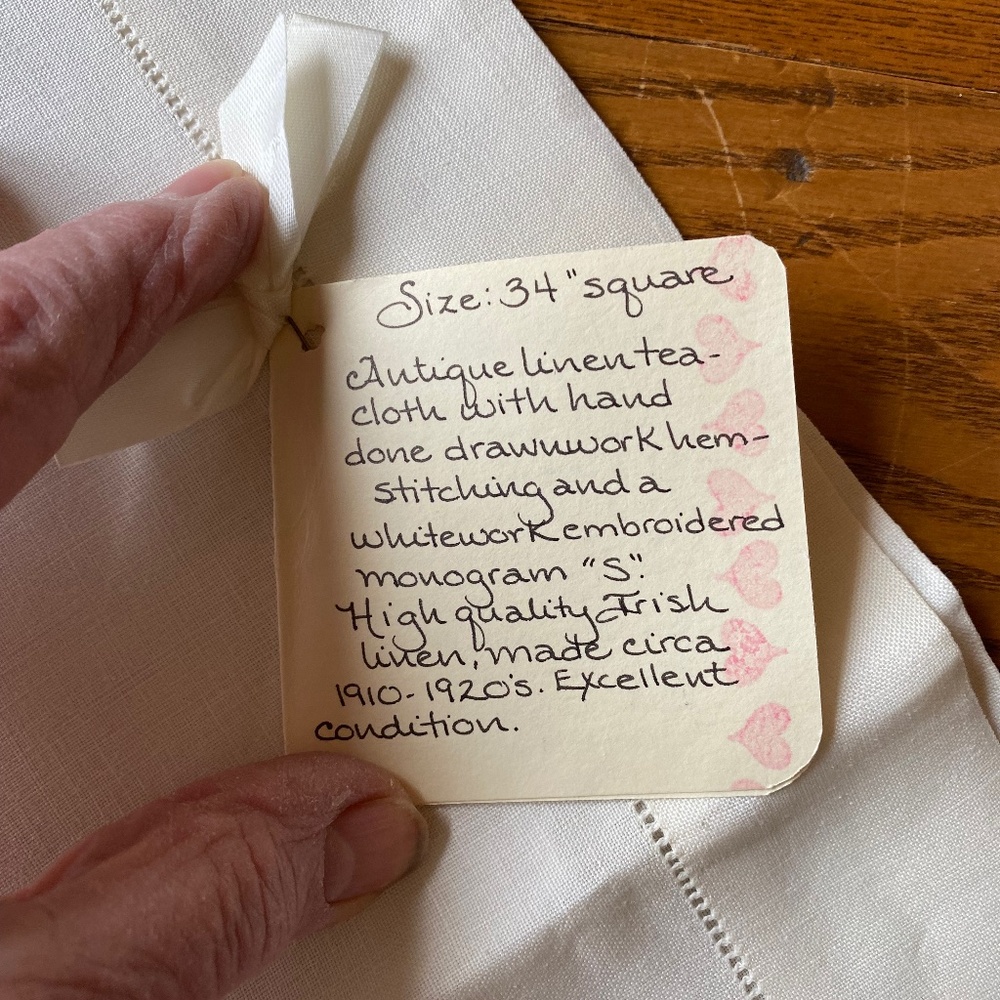 Size: 34" square
Antique linen tea-
cloth with hand
done drawnwork hem-
stitching and a
whitework embroidered
monogram "S".
High quality Irish
linen, made circa
1910-1920's. Excellent
condition.